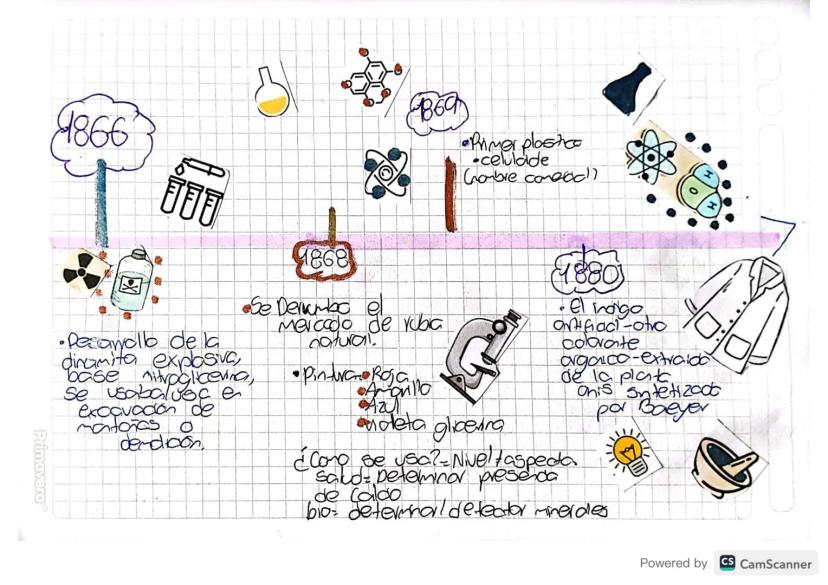 1866
1869
•Primer plastico
•celuloide
(nombre comercial)
1868
1880
•Desarrollo de la
dinamita explosiva,
base nitroglicerina,
se usaba/usa en
excavación de
montañas o
demolición.
•Se Derrumba el
mercado de rubia
natural.
•Pintura•Roja
•Amarillo
•Azul
•violeta glicerina
¿Como se usa?=Nivel/aspecto
salud=Determinar presencia
de Calcio
bio= determinar/detectar minerales
•El indigo
artificial-otro
colorante
organico-extraido
de la planta
anis sintetizado
por Baeyer
H
O
H
Primavera
Powered by CS CamScanner